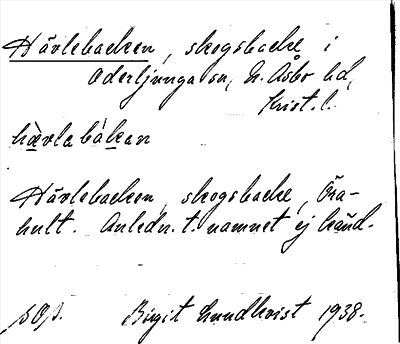 Hävlebacken, skogsbacke i
Oderljunga sn, N. Åsbo hd,
Krist. l.
hàvlabàkan
Hävlebacken, skogsbacke, Öra-
hult. Anledn. t. namnet ej känd.
Birgit Lundkvist 1938.